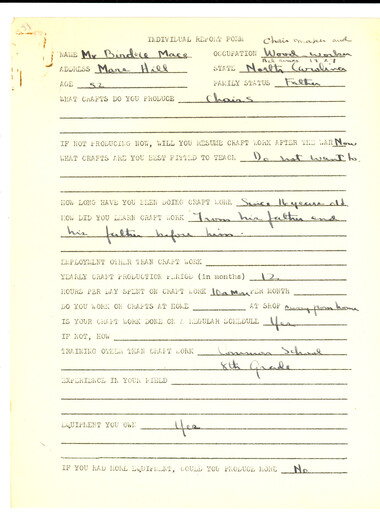 INDIVIDUAL REPORT FORM
Chair maker and
NAME Mr Birdie Mace OCCUPATION Wood-worker
ADDRESS Mars Hill STATE North Carolina
AGE 52 FAMILY STATUS Father
WHAT CRAFTS DO YOU PRODUCE Chairs
IF NOT PRODUCING NOW, WILL YOU RESUME CRAFT WORK AFTER THE WAR Now
WHAT CRAFTS ARE YOU BEST FITTED TO TEACH Do not want to.
HOW LONG HAVE YOU BEEN DOING CRAFT WORK Since 16 years old
HOW DID YOU LEARN CRAFT WORK From his father and
his father before him.
EMPLOYMENT OTHER THAN CRAFT WORK
YEARLY CRAFT PRODUCTION PERIOD (in months) 12
HOURS PER DAY SPENT ON CRAFT WORK 10 a PER MONTH
DO YOU WORK ON CRAFTS AT HOME AT SHOP away from home
IS YOUR CRAFT WORK DONE ON A REGULAR SCHEDULE Yes
IF NOT, HOW
TRAINING OTHER THAN CRAFT WORK Common School
8th Grade
EXPERIENCE IN YOUR FIELD
EQUIPMENT YOU OWN Yes
IF YOU HAD MORE EQUIPMENT, WOULD YOU PRODUCE MORE No